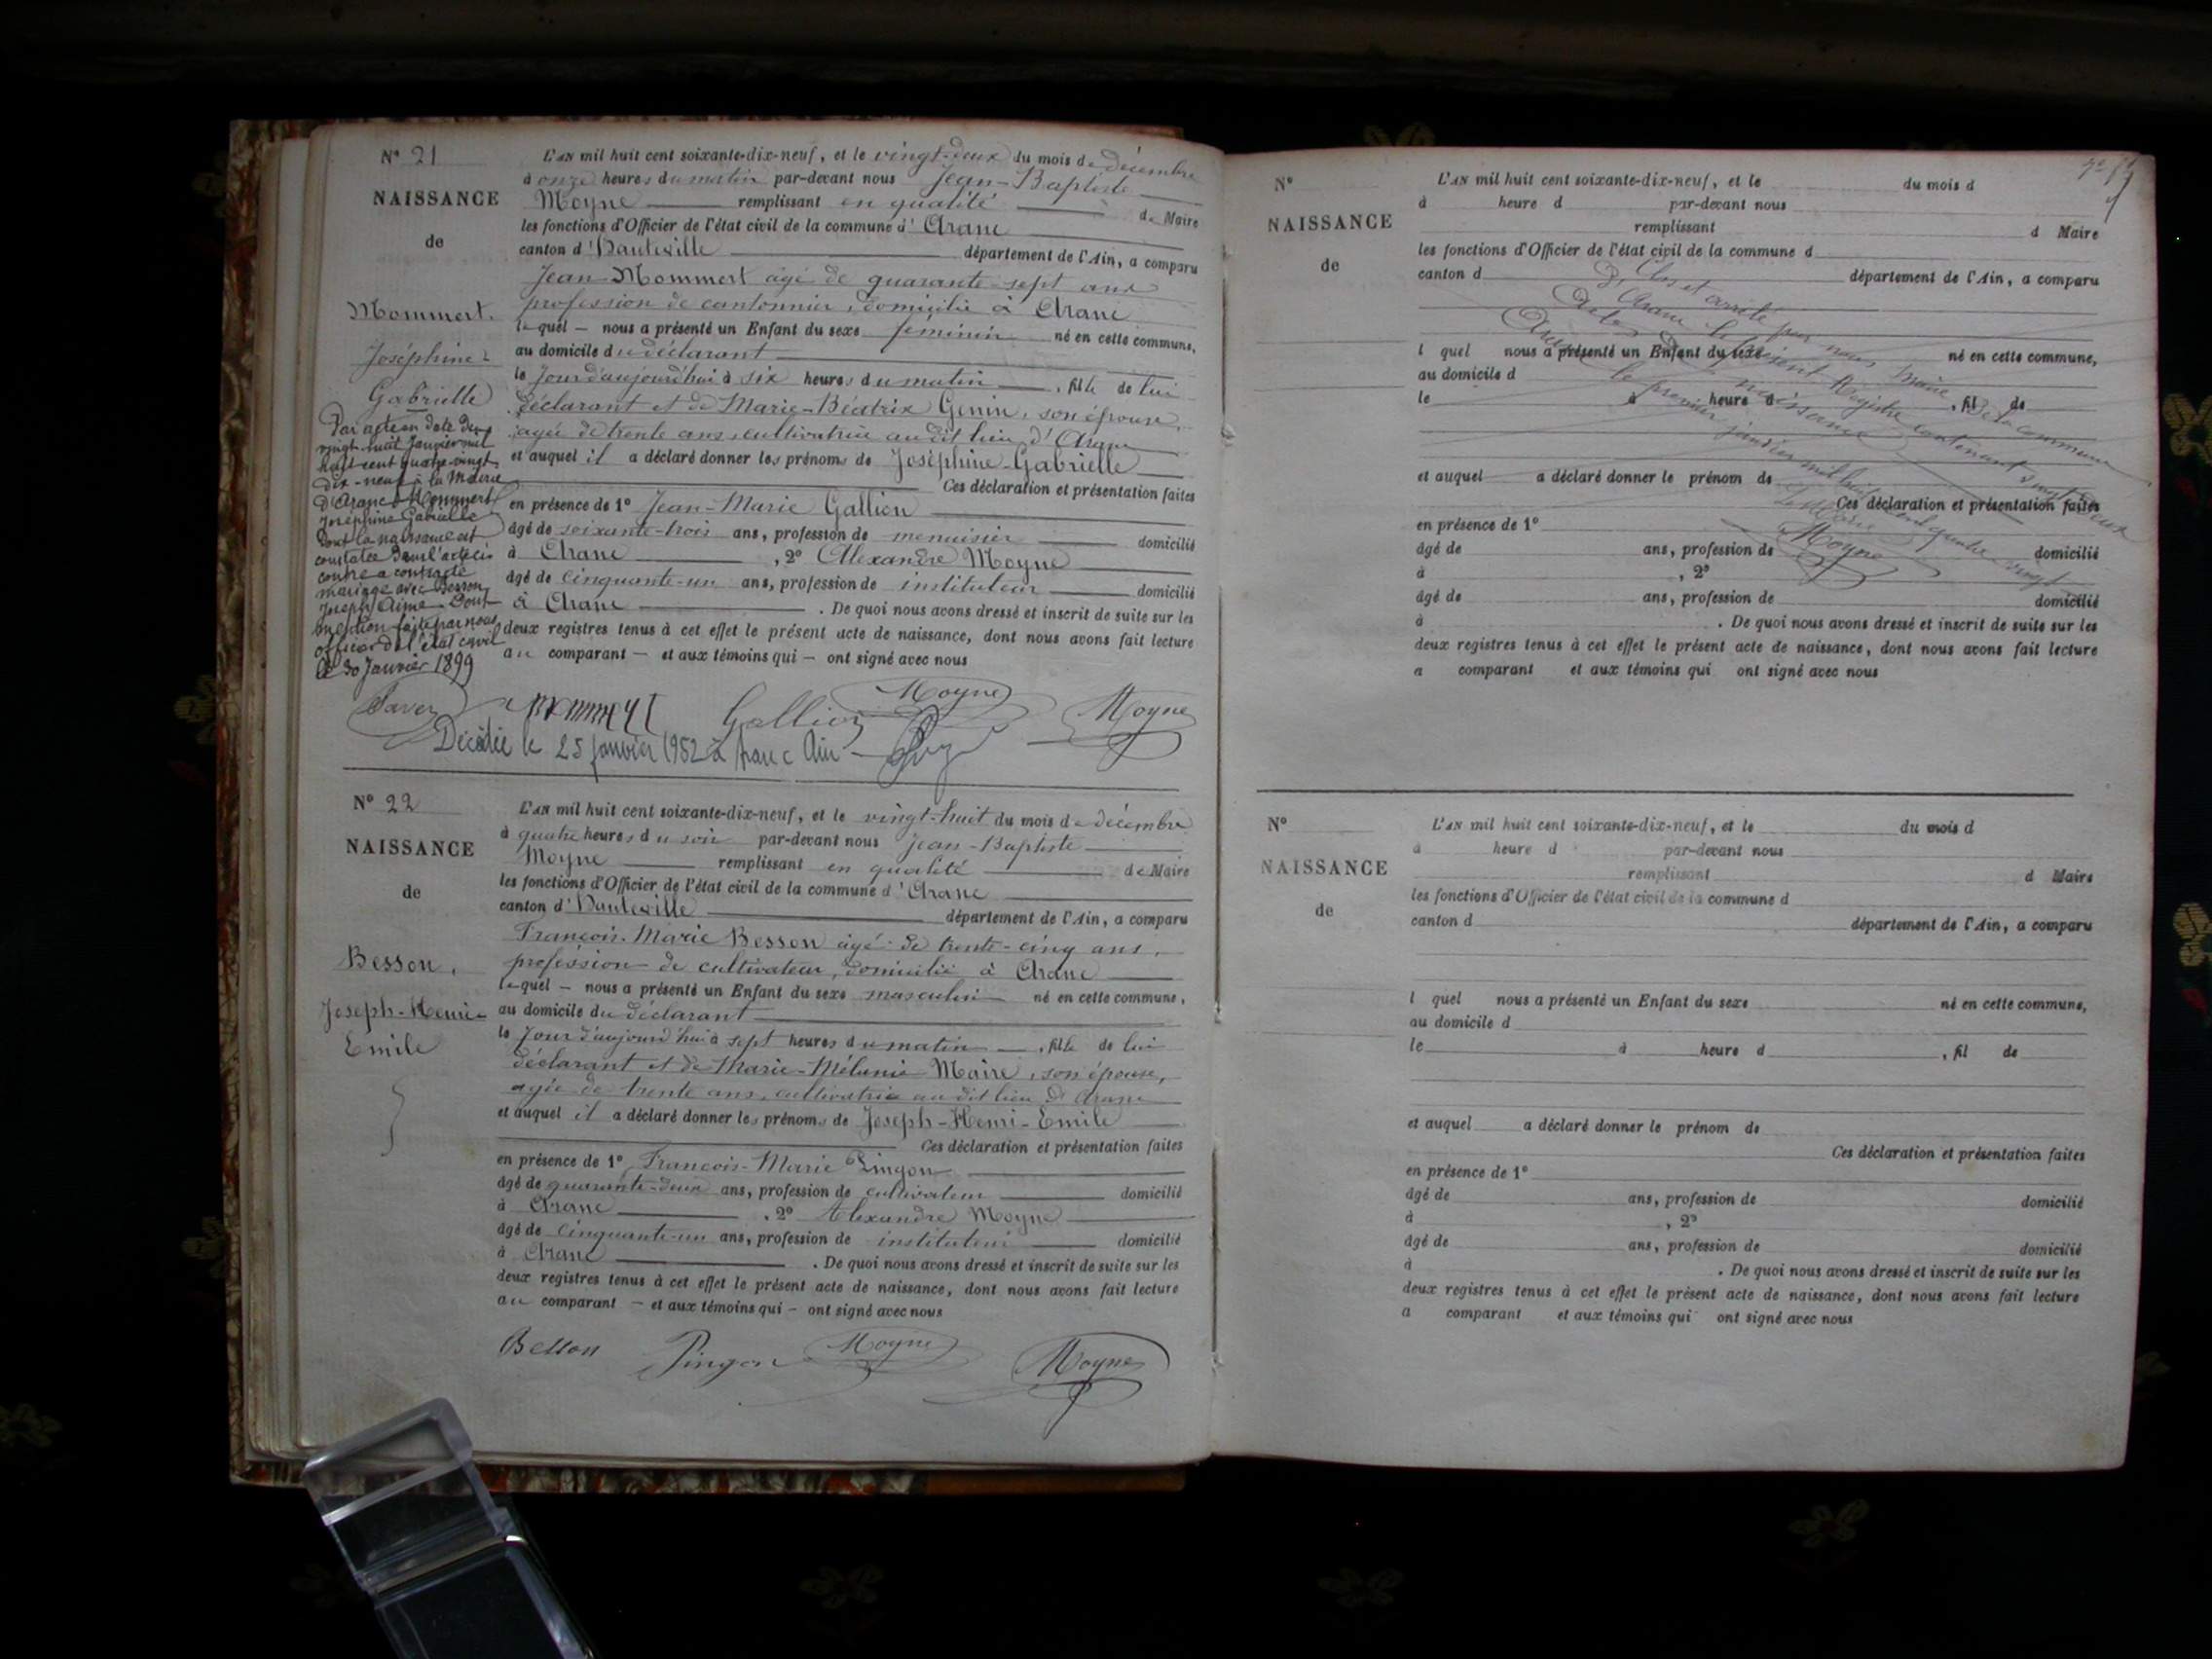 N° 21
NAISSANCE
de
Mommert.
Joséphine-
Gabrielle
Par acte en date du
vingt-huit Janvier mil
huit cent quatre-vingt
dix-neuf à la Mairie
d'Aranc Mommert
Joséphine Gabrielle
dont la naissance est
constatée dans l'acte ci
contre a contracté
mariage avec Besson
Joseph Aimé. Dont
mention faite par nous
officier de l'état civil
le 30 Janvier 1899
L'AN mil huit cent soixante-dix-neuf, et le vingt-deux du mois de décembre
à onze heures du matin par-devant nous Jean-Baptiste
Moyne remplissant en qualité de Maire
les fonctions d'Officier de l'état civil de la commune d'Aranc
canton d'Hauteville département de l'Ain, a comparu
Jean Mommert âgé de quarante-sept ans
profession de cantonnier, domicilié à Aranc
lequel — nous a présenté un Enfant du sexe féminin né en cette commune,
au domicile du déclarant
le jour d'aujourd'hui à six heures du matin, fille de lui
déclarant et de Marie-Béatrix Genin, son épouse,
agée de trente ans, cultivatrice au dit lieu d'Aranc
et auquel il a déclaré donner les prénoms de Joséphine-Gabrielle
Ces déclaration et présentation faites
en présence de 1° Jean-Marie Gallion
âgé de soixante-trois ans, profession de menuisier domicilié
à Aranc, 2° Alexandre Moyne
âgé de cinquante-un ans, profession de instituteur domicilié
à Aranc. De quoi nous avons dressé et inscrit de suite sur les
deux registres tenus à cet effet le présent acte de naissance, dont nous avons fait lecture
au comparant — et aux témoins qui — ont signé avec nous
Mommert Gallion Moyne Moyne
Décédée le 25 janvier 1952 à Aranc Ain
N° 22
NAISSANCE
de
Besson,
Joseph-Henri-
Emile
L'AN mil huit cent soixante-dix-neuf, et le vingt-huit du mois de décembre
à quatre heures du soir par-devant nous Jean-Baptiste
Moyne remplissant en qualité de Maire
les fonctions d'Officier de l'état civil de la commune d'Aranc
canton d'Hauteville département de l'Ain, a comparu
François-Marie Besson âgé de trente-cinq ans,
profession de cultivateur, domicilié à Aranc
lequel — nous a présenté un Enfant du sexe masculin né en cette commune,
au domicile du déclarant
le jour d'aujourd'hui à sept heures du matin, fils de lui
déclarant et de Marie-Mélanie Maire, son épouse,
agée de trente ans, cultivatrice au dit lieu d'Aranc
et auquel il a déclaré donner les prénoms de Joseph-Henri-Emile
Ces déclaration et présentation faites
en présence de 1° François-Marie Pingon
âgé de quarante-deux ans, profession de cultivateur domicilié
à Aranc, 2° Alexandre Moyne
âgé de cinquante-un ans, profession de instituteur domicilié
à Aranc. De quoi nous avons dressé et inscrit de suite sur les
deux registres tenus à cet effet le présent acte de naissance, dont nous avons fait lecture
au comparant — et aux témoins qui — ont signé avec nous
Besson Pingon Moyne Moyne
N°
NAISSANCE
de
L'AN mil huit cent soixante-dix-neuf, et le du mois d
à heure d par-devant nous
remplissant d Maire
les fonctions d'Officier de l'état civil de la commune d
canton d département de l'Ain, a comparu
l quel nous a présenté un Enfant du sexe né en cette commune,
au domicile d
le à heure d, fil de
et auquel a déclaré donner le prénom de
Ces déclaration et présentation faites
en présence de 1°
âgé de ans, profession de domicilié
à, 2°
âgé de ans, profession de domicilié
à. De quoi nous avons dressé et inscrit de suite sur les
deux registres tenus à cet effet le présent acte de naissance, dont nous avons fait lecture
a comparant et aux témoins qui ont signé avec nous
Clos et arrêté par nous Maire de la commune
le présent Registre contenant vingt-deux
naissance
le premier janvier mil huit cent quatre vingt
Le Maire
Moyne
N°
NAISSANCE
de
L'AN mil huit cent soixante-dix-neuf, et le du mois d
à heure d par-devant nous
remplissant d Maire
les fonctions d'Officier de l'état civil de la commune d
canton d département de l'Ain, a comparu
l quel nous a présenté un Enfant du sexe né en cette commune,
au domicile d
le à heure d, fil de
et auquel a déclaré donner le prénom de
Ces déclaration et présentation faites
en présence de 1°
âgé de ans, profession de domicilié
à, 2°
âgé de ans, profession de domicilié
à. De quoi nous avons dressé et inscrit de suite sur les
deux registres tenus à cet effet le présent acte de naissance, dont nous avons fait lecture
a comparant et aux témoins qui ont signé avec nous